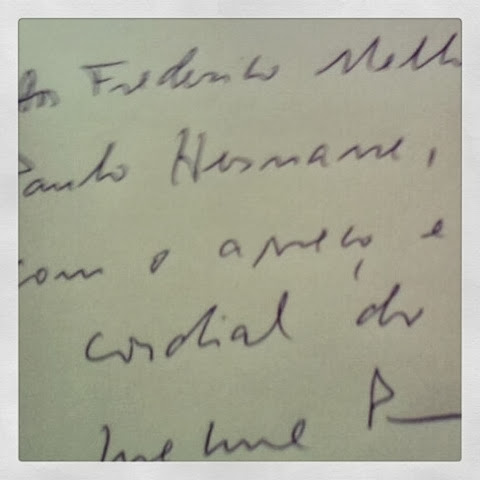 Ao Frederico Mello
Paulo Hermann,
com o apreço e
cordial do
P